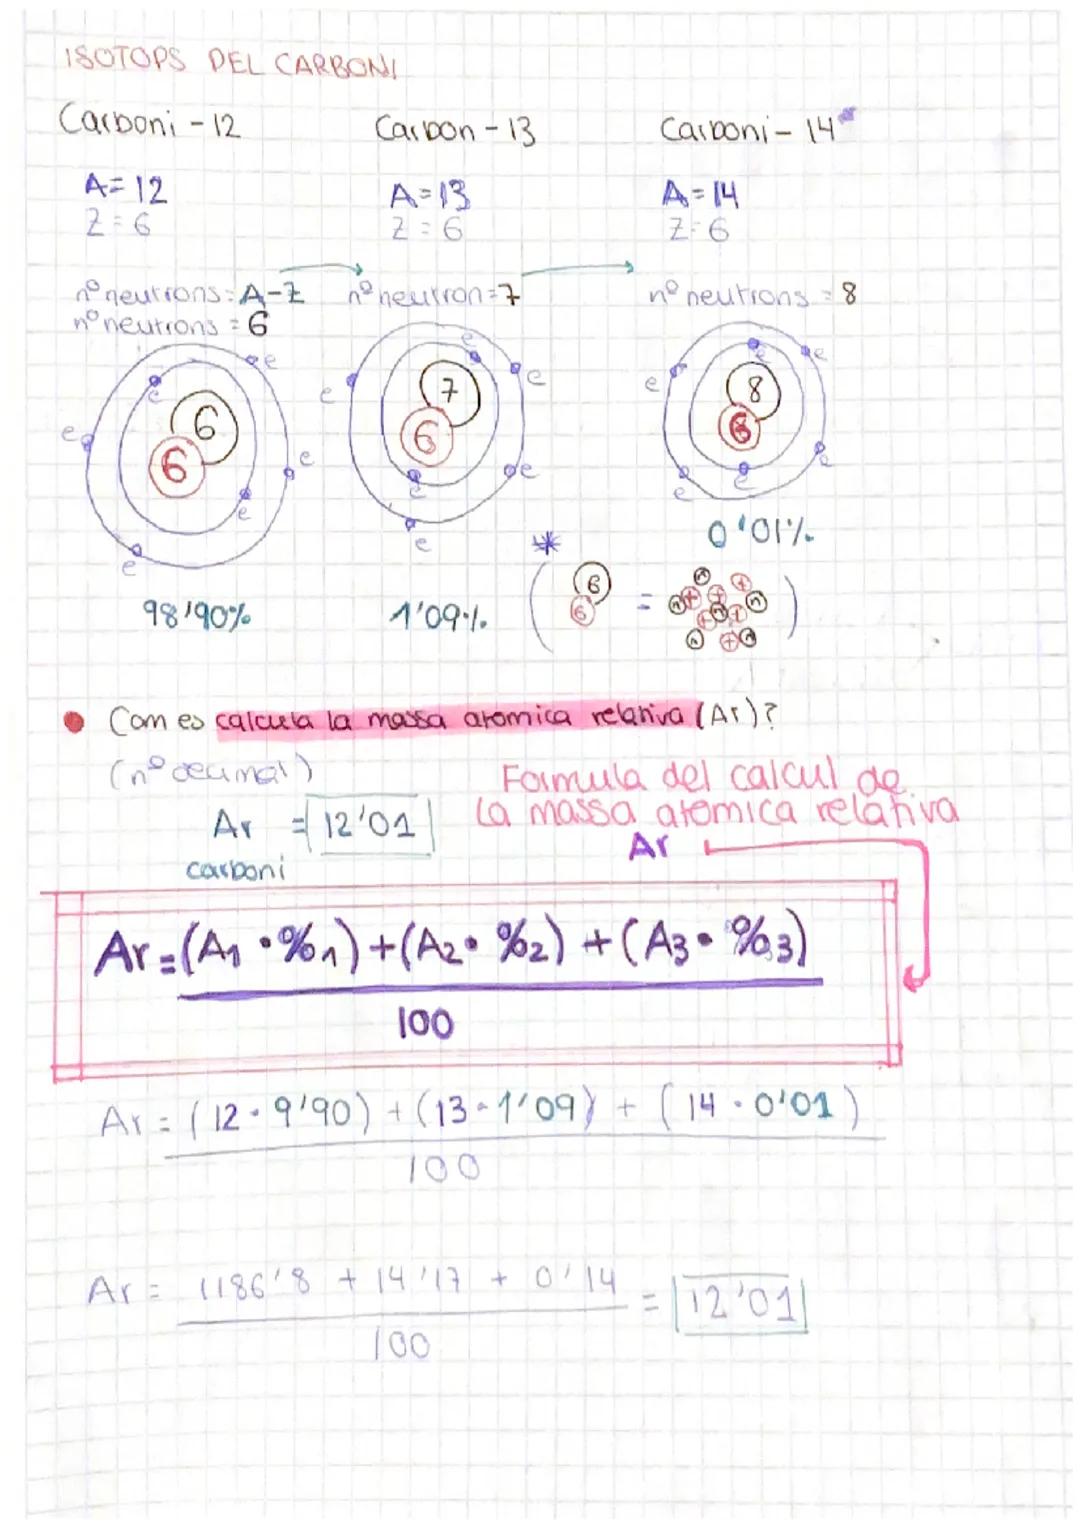 ISOTOPS DEL CARBONI
Carboni - 12 Carbon - 13 Carboni - 14*
A = 12 A = 13 A = 14
Z = 6 Z = 6 Z = 6
nº neutrons = A-Z nº neutron = 7 nº neutrons = 8
nº neutrons = 6
e e e e e e
6 6
e e e e e e
7 6
e e e e e e
8 6
98'90% 1'09% 0'01%
* ( 6 6 = n + + n + n + n + n + n )
Com es calcula la massa atomica relativa (Ar)?
(nº decimal)
Ar = 12'01
carboni
Formula del calcul de
la massa atomica relativa
Ar
Ar = (A1 · %1) + (A2 · %2) + (A3 · %3)
100
Ar = (12 · 9'90) + (13 · 1'09) + (14 · 0'01)
100
Ar = 1186'8 + 14'17 + 0'14 = 12'01
100